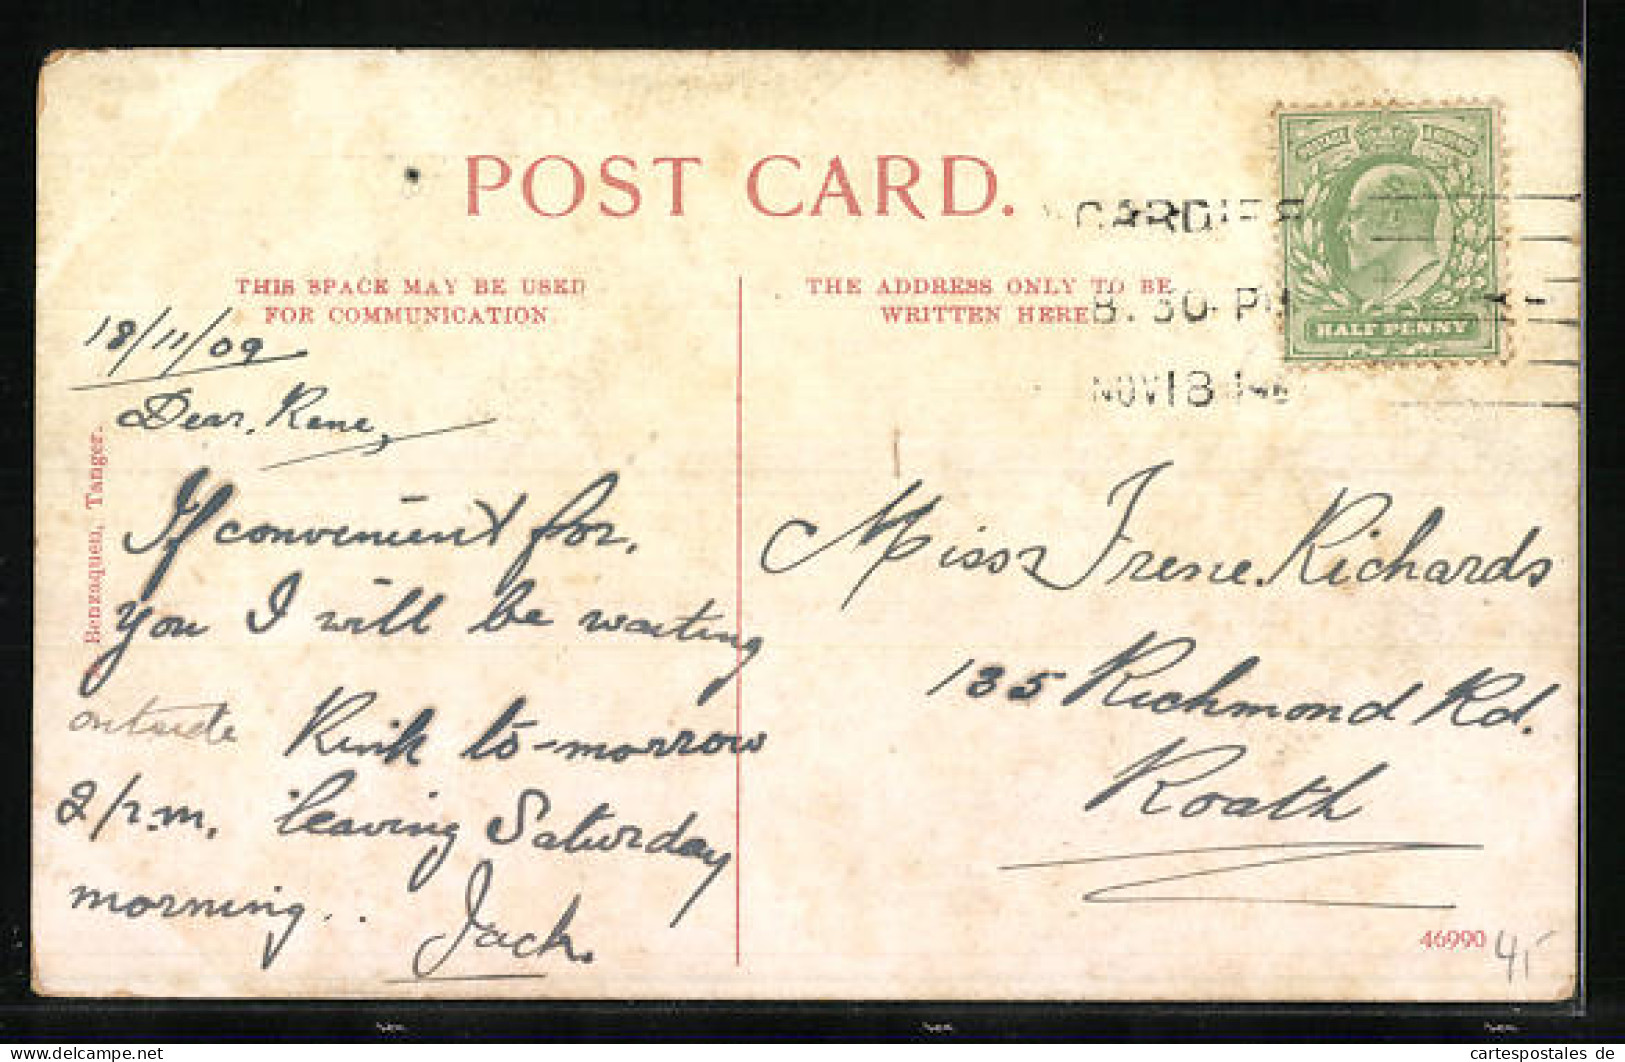 POST CARD.
THIS SPACE MAY BE USED
FOR COMMUNICATION
THE ADDRESS ONLY TO BE
WRITTEN HERE
CARDIFF
8.30 PM
NOV 18
HALF PENNY
18/11/09
Dear, Rene,
If convenient for,
you I will be waiting
outside Rink to-morrow
2/p.m. leaving Saturday
morning..
Jack.
Miss Irene. Richards
135 Richmond Rd.
Roath
Benzaquen, Tanger.
46990
4,-
cartespostales.de